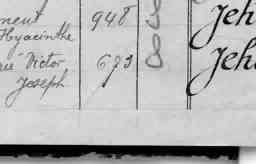 ment 948 Jeh
Hyacinthe
rie Victor 673 Jeh
Joseph